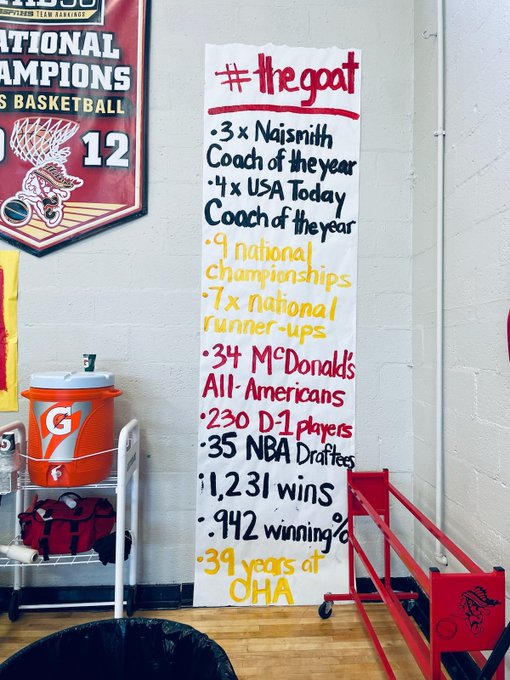 ESPNHS TEAM RANKINGS
NATIONAL
CHAMPIONS
S BASKETBALL
12
#thegoat
•3 x Naismith
Coach of the year
•4 x USA Today
Coach of the year
•9 national
championships
•7x national
runner-ups
•34 McDonald's
All-Americans
•230 D-1 players
•35 NBA Draftees
•1,231 wins
•.942 winning%
•39 years at
OHA
G